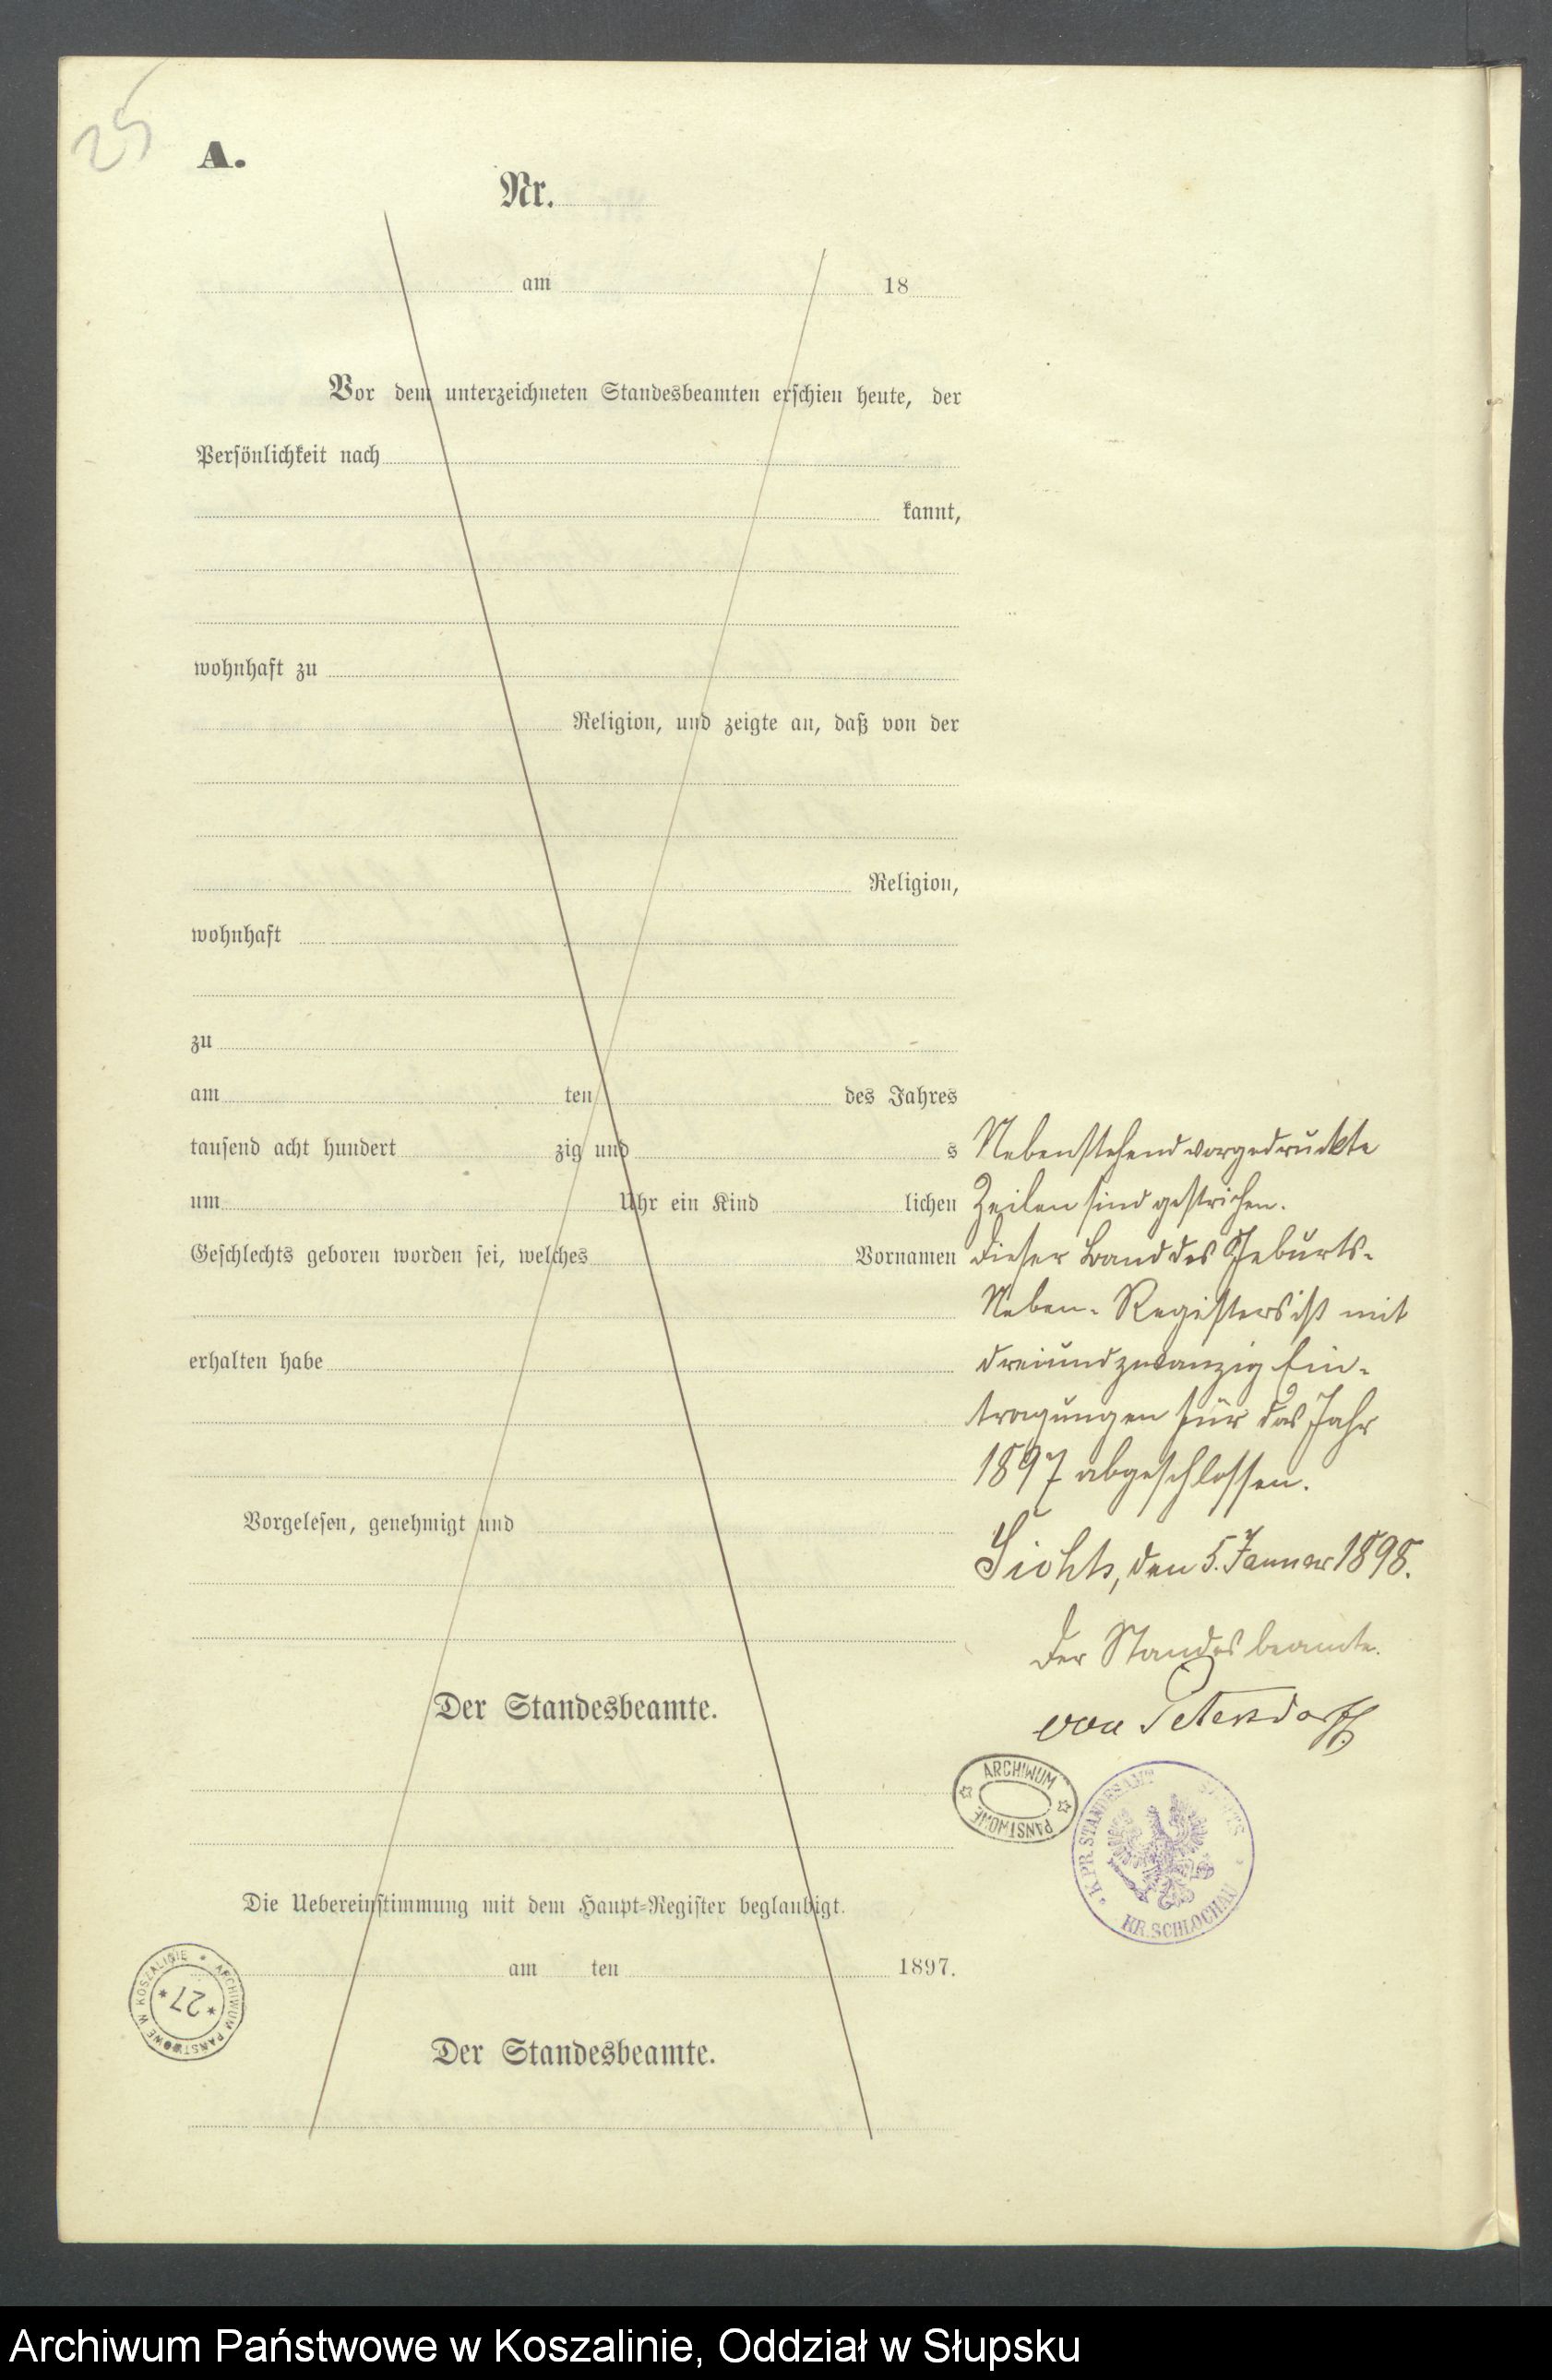 25
A.
Nr.
am 18
Vor dem unterzeichneten Standesbeamten erschien heute, der
Persönlichkeit nach
kannt,
wohnhaft zu
Religion, und zeigte an, daß von der
Religion,
wohnhaft
zu
am ten des Jahres
tausend acht hundert zig und s
um Uhr ein Kind lichen
Geschlechts geboren worden sei, welches Vornamen
erhalten habe
Vorgelesen, genehmigt und
Der Standesbeamte.
Die Uebereinstimmung mit dem Haupt-Register beglaubigt.
am ten 1897.
Der Standesbeamte.
Nebenstehend vorgedruckte
Zeilen sind gestrichen.
Dieser Band des Geburts-
Neben-Registers ist mit
dreiundzwanzig Ein-
tragungen für das Jahr
1897 abgeschlossen.
den 5. Januar 1898.
Der Standesbeamte.
von Petersdorff
ARCHIWUM PAŃSTWOWE
K. PR. STANDESAMT
KR. SCHLOCHAU
ARCHIWUM PAŃSTWOWE W KOSZALINIE
* 27 *
Archiwum Państwowe w Koszalinie, Oddział w Słupsku